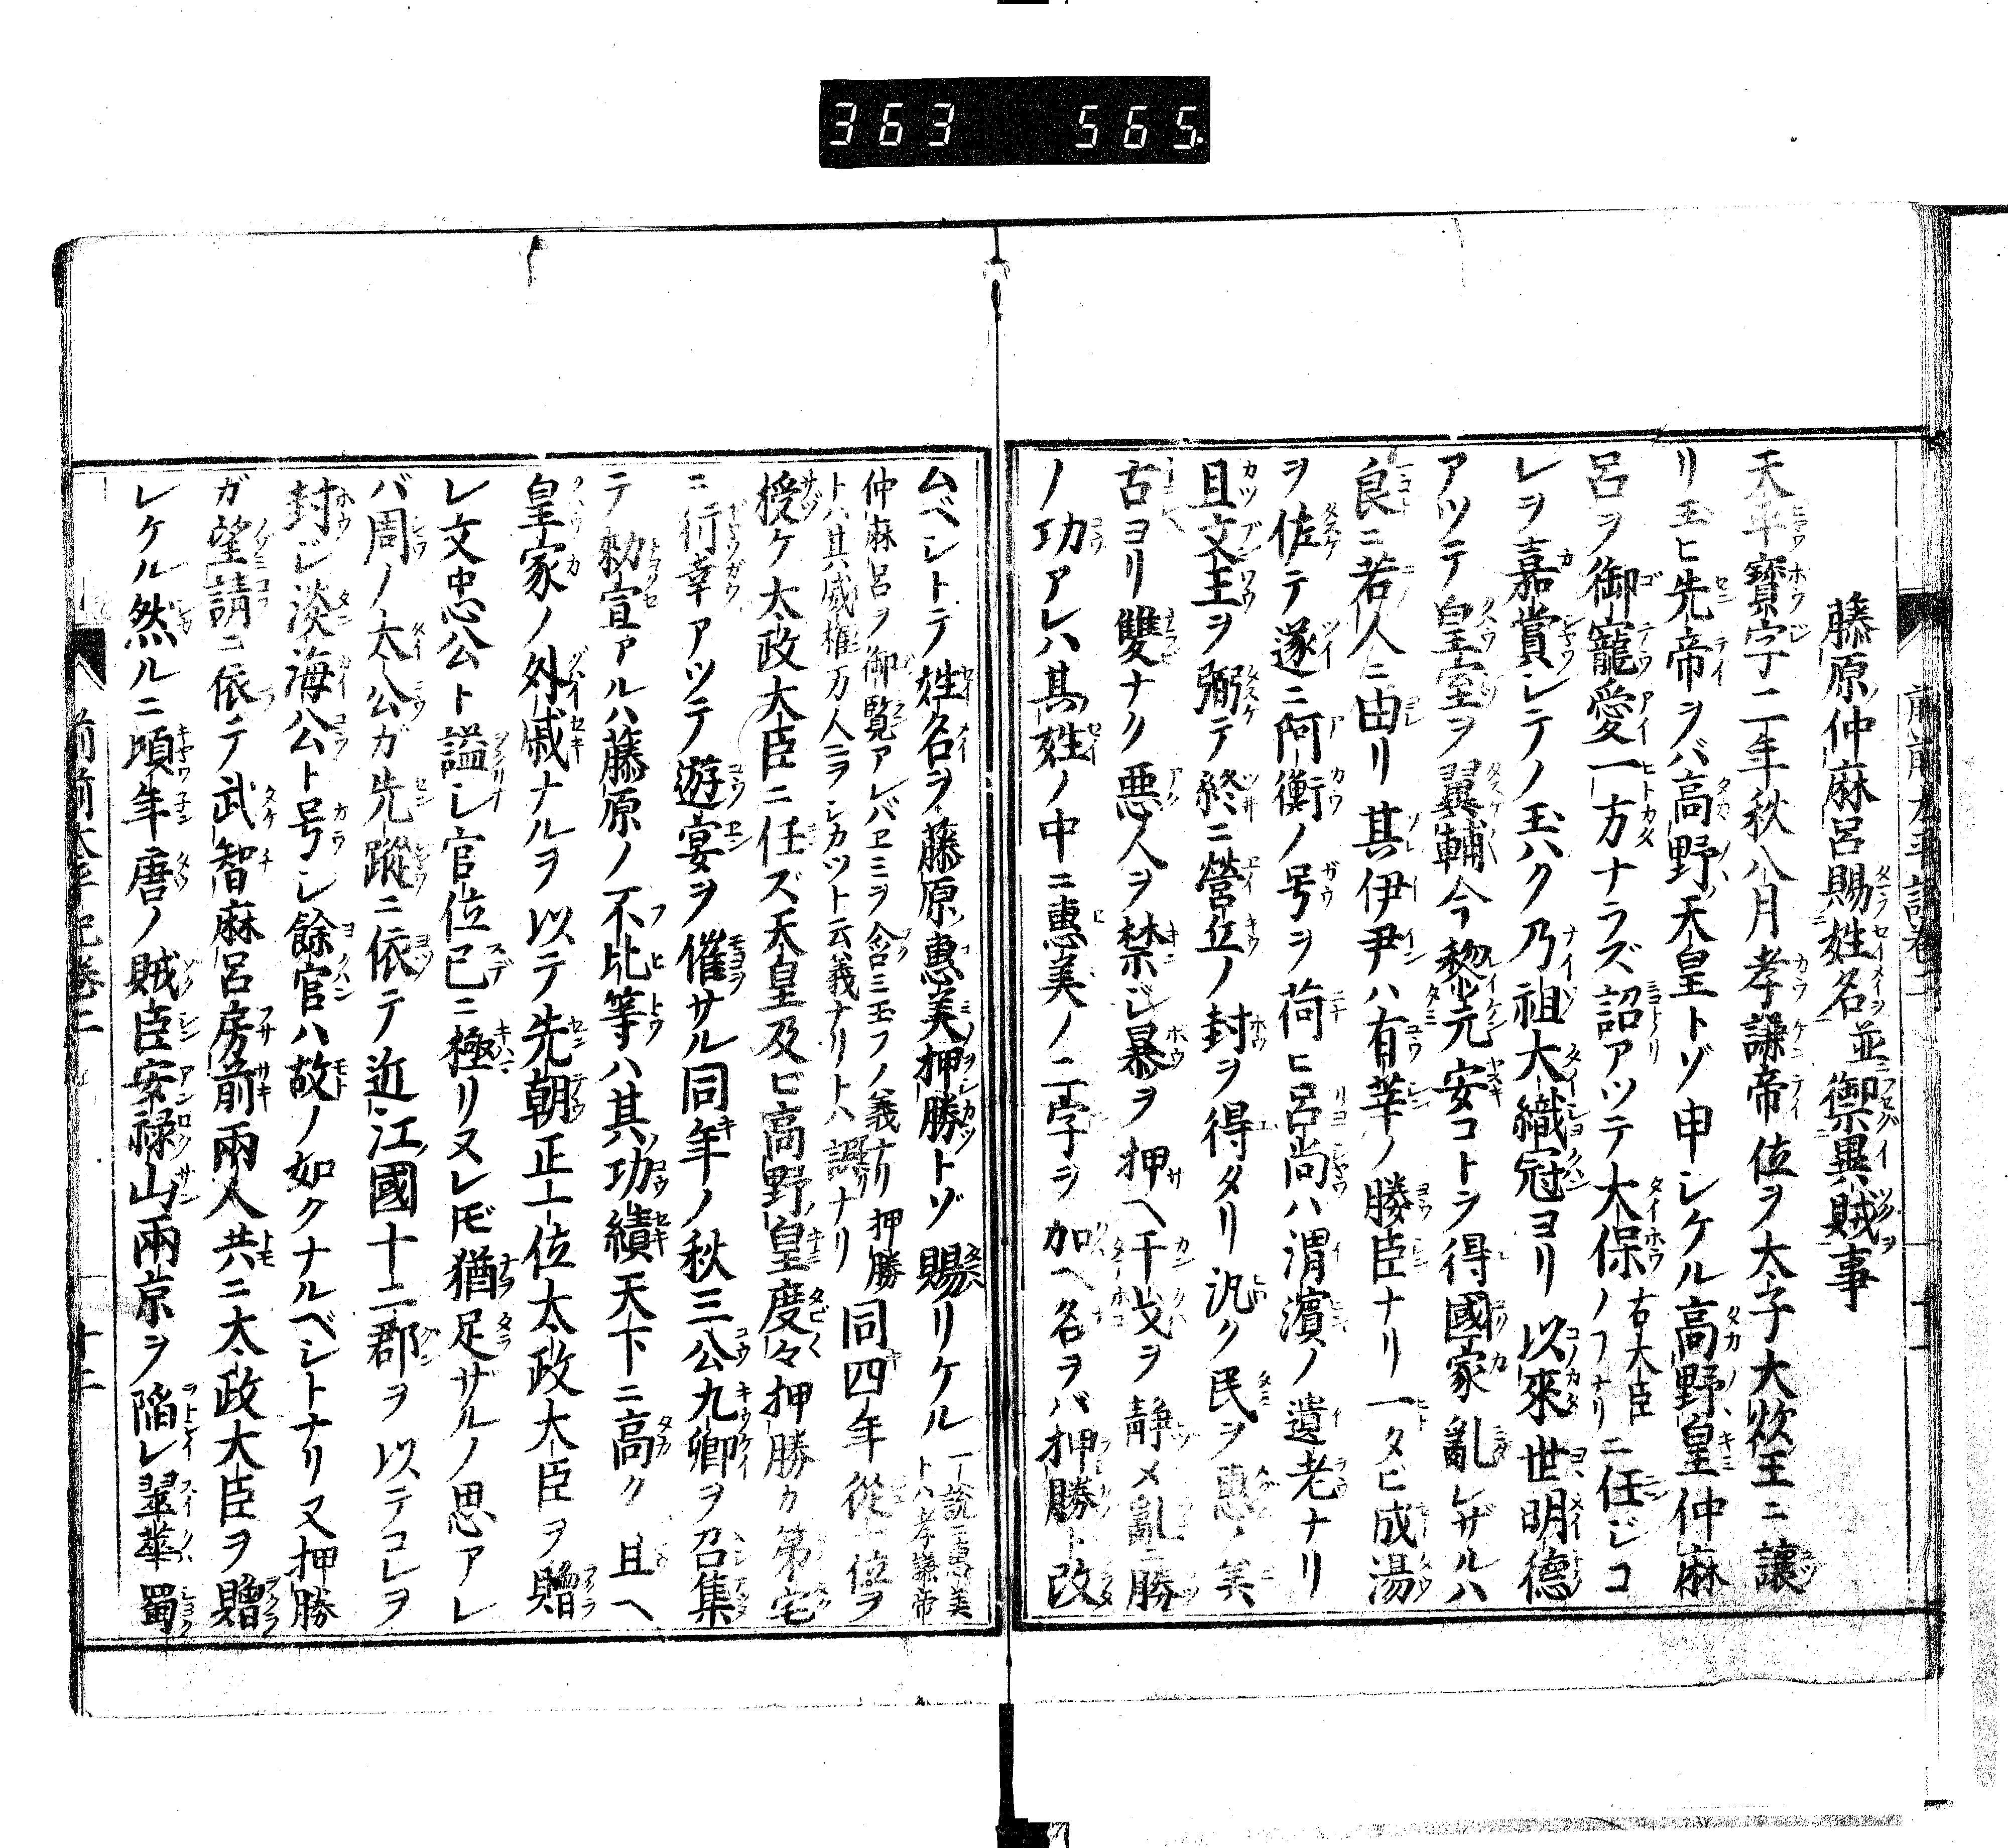 363 565.
藤原仲麻呂賜姓名並禦異賊事
天平寳字二年秋八月孝謙帝位ヲ太子大炊王ニ讓
リ玉ヒ先帝ヲバ高野天皇トゾ申シケル高野皇仲麻
呂ヲ御寵愛一方ナラズ詔アツテ大保右大臣ノフナリニ任ジコ
レヲ嘉賞シテノ玉ハク乃祖大織冠ヨリ以來世明德
アツテ皇室ヲ翼輔今黎元安コトヲ得國家亂レザルハ
良ニ若人ニ由リ其伊尹ハ有莘ノ勝臣ナリ一タビ成湯
ヲ佐テ遂ニ阿衡ノ号ヲ荷ヒ呂尚ハ渭濱ノ遺老ナリ
且文王ヲ弼テ終ニ營丘ノ封ヲ得タリ汎ク民ヲ惠ノ美
古ヨリ雙ナク惡人ヲ禁ジ暴ヲ押ヘ干戈ヲ靜メ亂ニ勝
ノ功アレハ其姓ノ中ニ惠美ノ二字ヲ加ヘ名ヲバ押勝ト改
ムベシトテ姓名ヲ藤原惠美押勝トゾ賜リケル一説ニ惠美トハ孝謙帝
仲麻呂ヲ御覧アレバヱミヲ含ミ玉フノ義ナリ押勝トハ其威權万人ニヲシカツト云義ナリトハ誤ナリ同四年從一位ヲ
授ケ太政大臣ニ任ズ天皇及ビ高野皇度々押勝カ第宅
ニ行幸アツテ遊宴ヲ催サル同年ノ秋三公九卿ヲ召集
テ勅宣アルハ藤原ノ不比等ハ其功績天下ニ高ク且ヘ
皇家ノ外戚ナルヲ以テ先朝正一位太政大臣ヲ贈
レ文忠公ト謚シ官位已ニ極リヌレ𪜈猶足ザルノ思アレ
バ周ノ太公ガ先蹤ニ依テ近江國十二郡ヲ以テコレヲ
封ジ淡海公ト号シ餘官ハ故ノ如クナルベシトナリ又押勝
ガ望請ニ依テ武智麻呂房前兩人共ニ太政大臣ヲ贈
レケル然ルニ頃年唐ノ賊臣安禄山兩京ヲ陷レ翠華蜀
前前太平記卷二 十二